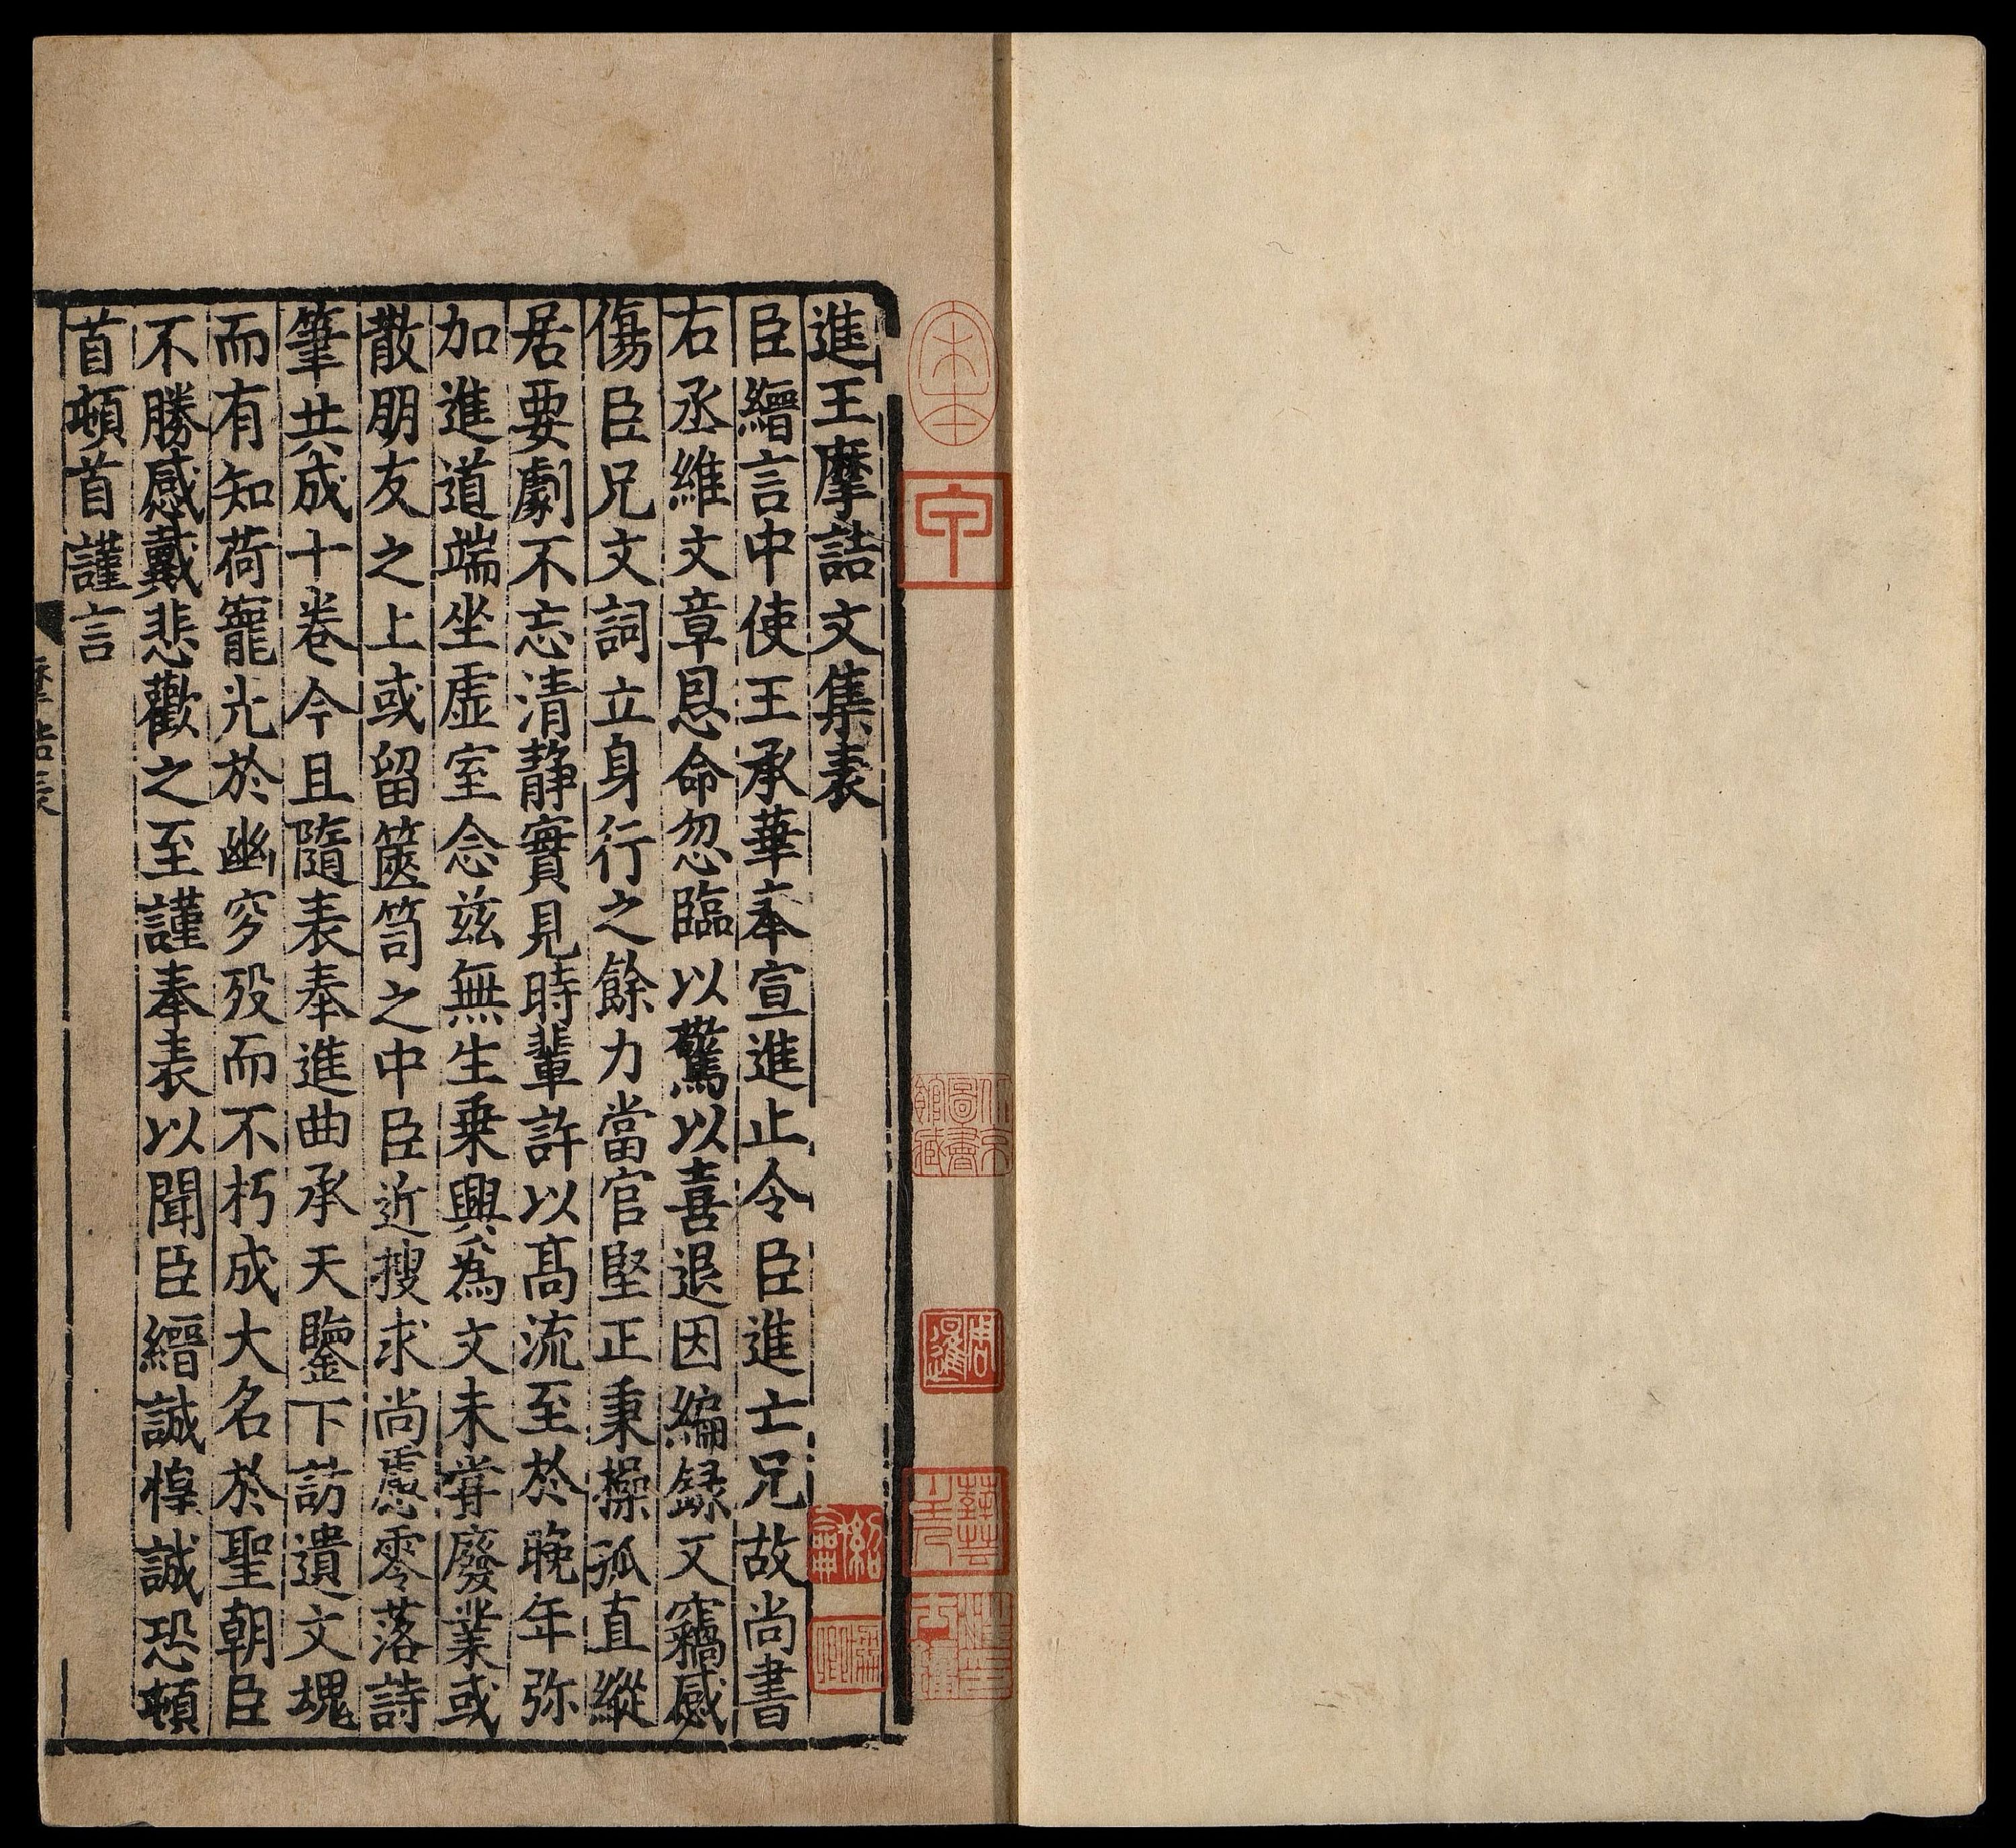 進王摩詰文集表
臣縉言中使王承華奉宣進止令臣進亡兄故尚書
右丞維文章恩命忽臨以驚以喜退因編録又竊感
傷臣兄文詞立身行之餘力當官堅正秉操孤直縱
居要劇不忘清静實見時輩許以髙流至於晚年弥
加進道端坐虚室念兹無生乗興為文未甞廢業或
散朋友之上或留篋笥之中臣近搜求尚慮零落詩
筆共成十卷今且隨表奉進曲承天鑒下訪遺文塊
而有知荷寵光於幽穸歿而不朽成大名於聖朝臣
不勝感戴悲歡之至謹奉表以聞臣縉誠惶誠恐頓
首頓首謹言
宋本